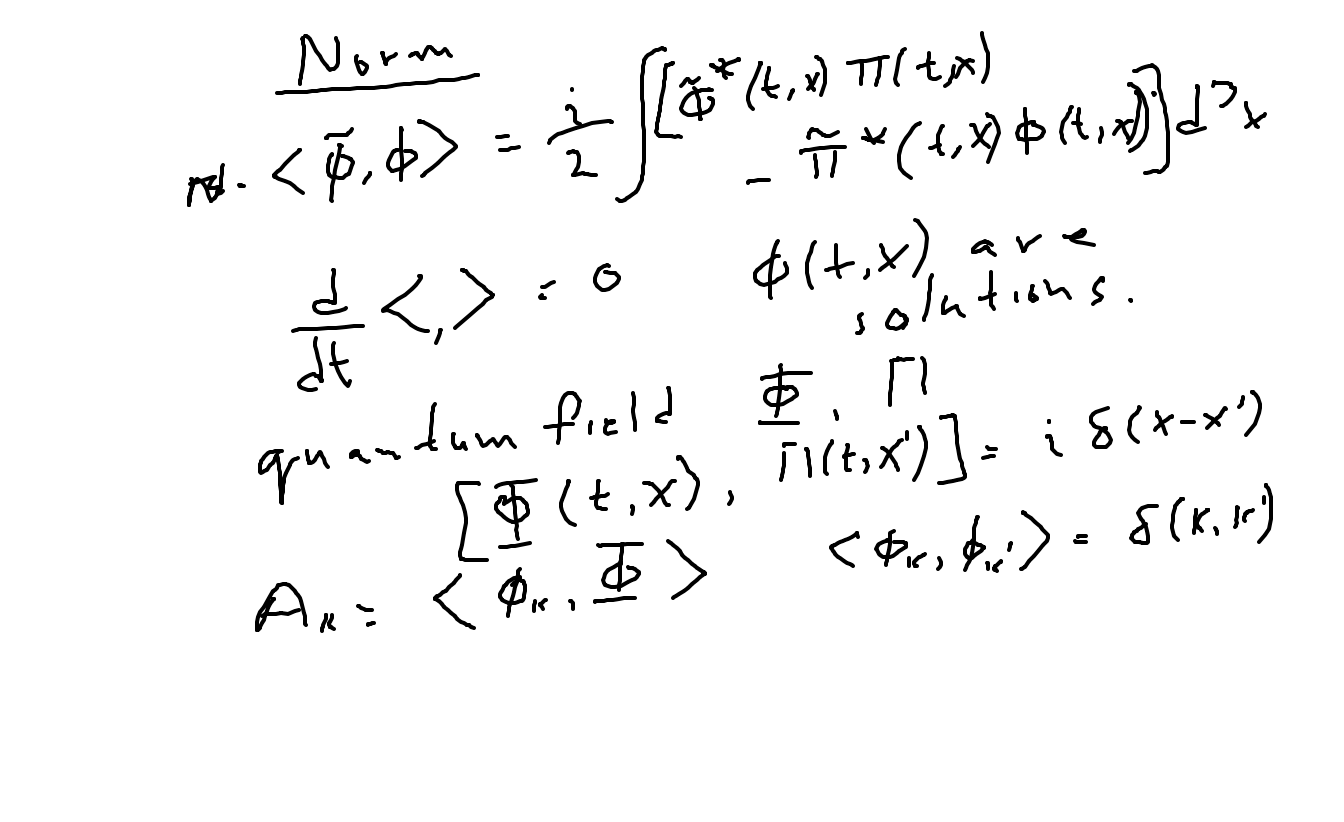 Norm
<φ̃, φ> = i/2 ∫[φ̃*(t,x) π(t,x) - π̃*(t,x) φ(t,x)] d³x
d/dt <,> = 0 φ(t,x) are
solutions.
quantum field Φ, Π
[Φ(t,x), Π(t,x')] = i δ(x-x')
A_k = <φ_k, Φ> <φ_k, φ_k'> = δ(k,k')